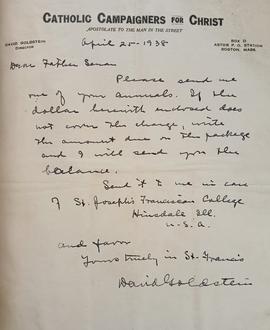 CATHOLIC CAMPAIGNERS FOR CHRIST
APOSTOLATE TO THE MAN IN THE STREET
DAVID GOLDSTEIN
DIRECTOR
BOX D
ASTOR P. O. STATION
BOSTON, MASS.
April 25-1938
Dear Father Senan
Please send me
one of your annuals. If the
dollar herewith enclosed does
not cover the charge, write
the amount due on the package
and I will send you the
balance.
Send it to me in care
of St. Joseph's Franciscan College
Hinsdale Ill.
U.S.A.
and favor
Yours truly in St. Francis
David Goldstein